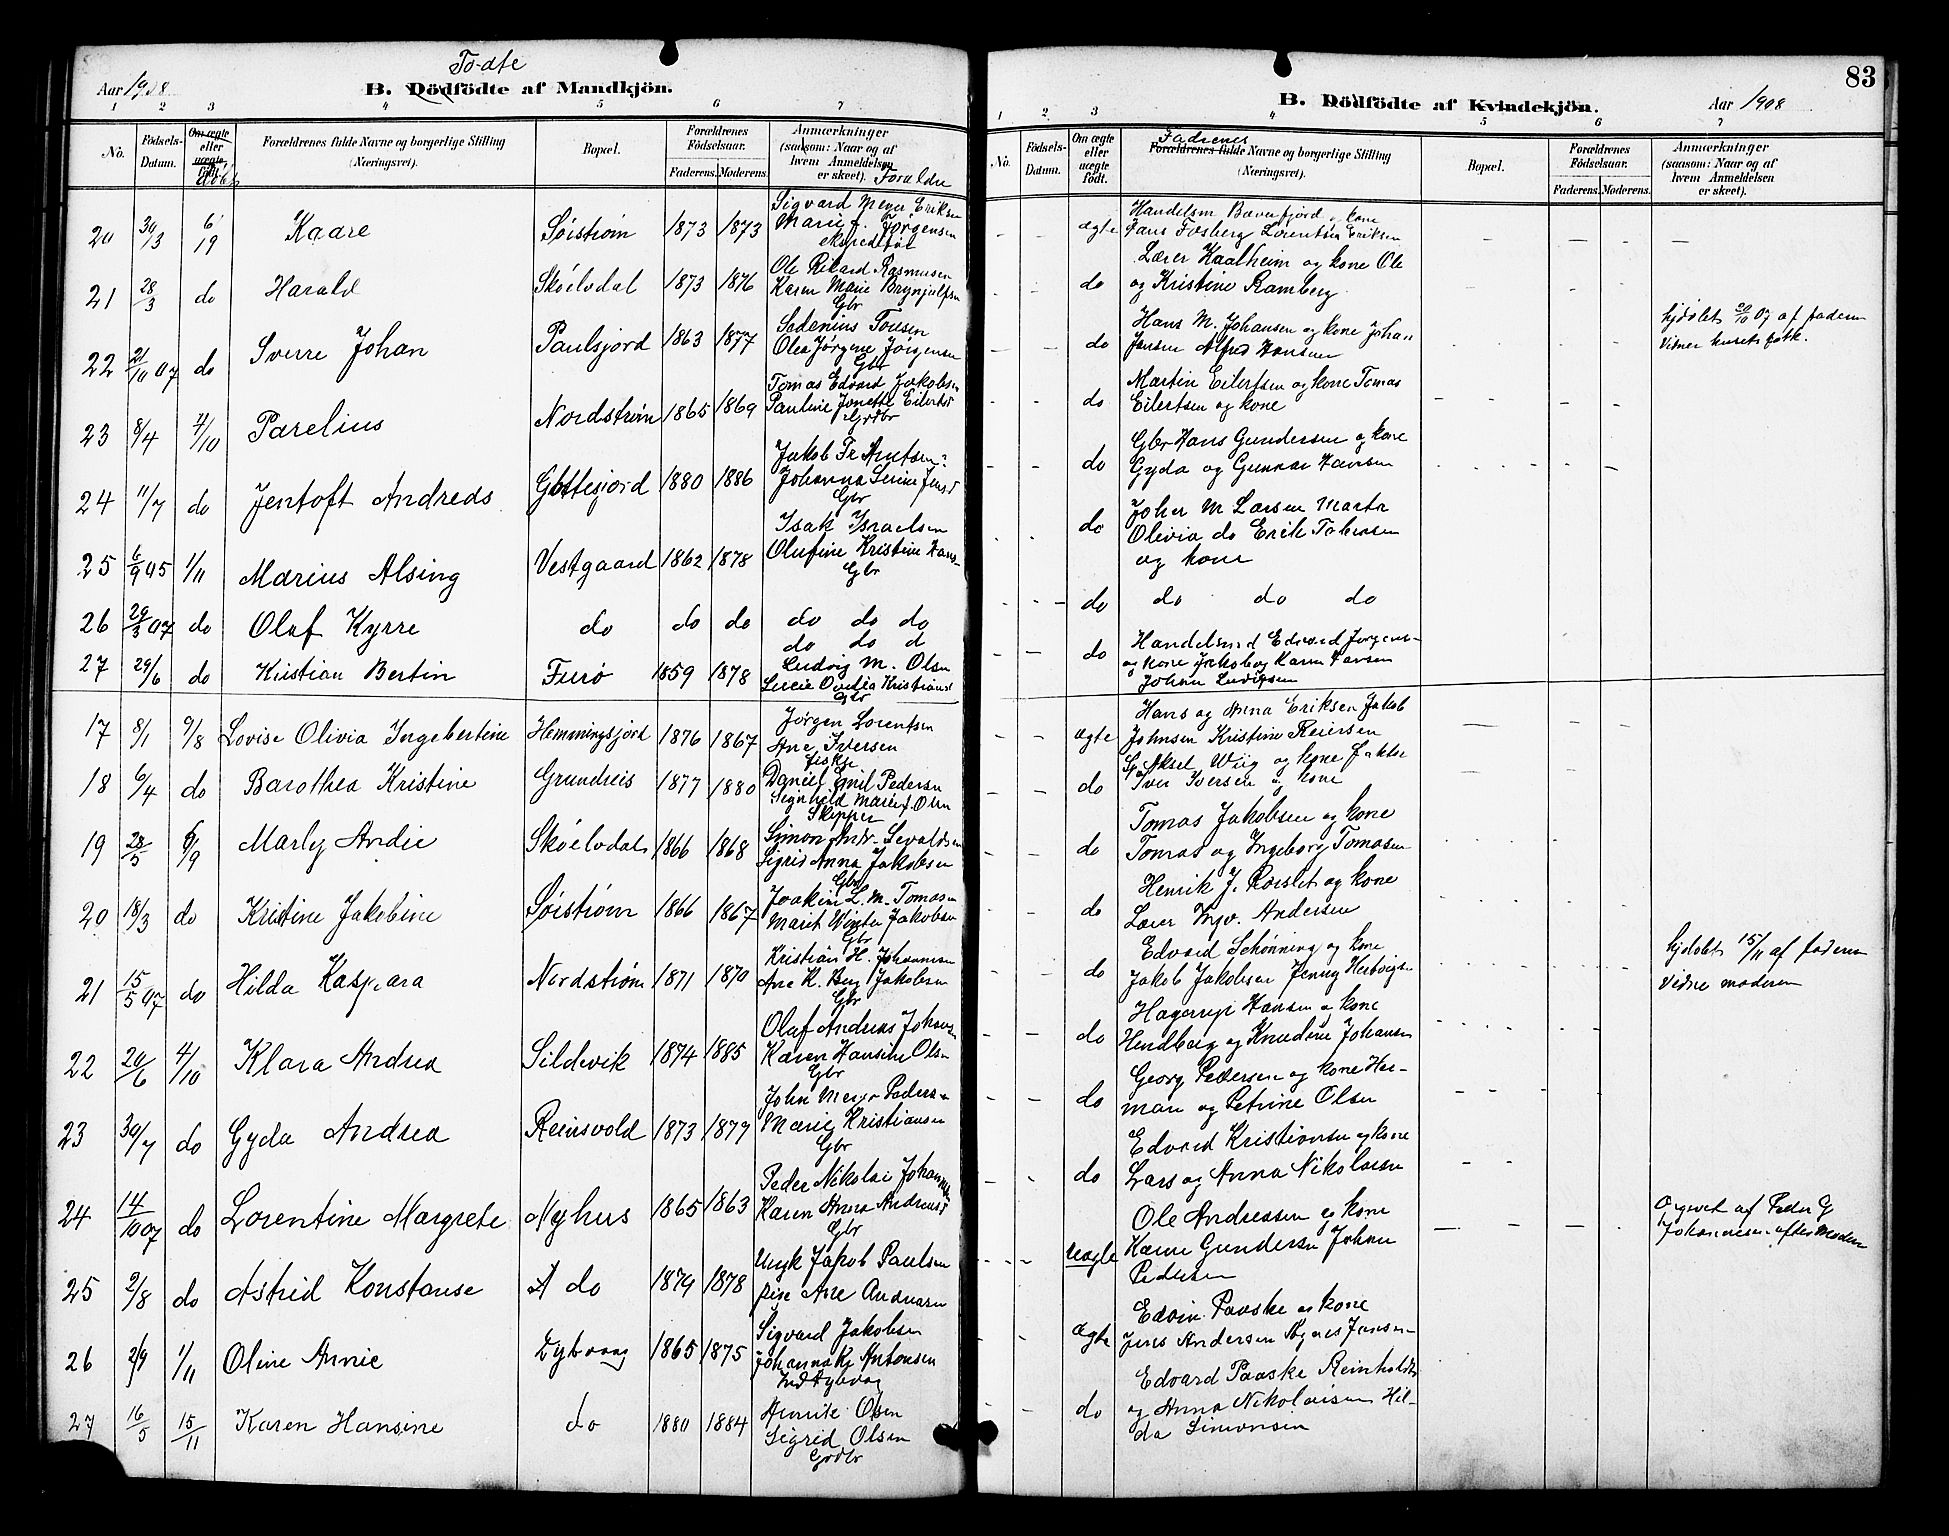 Aar 1908
Fødte
B. Dödfödte af Mandkjön.
1 2 3 4 5 6 7
No.
Födsels-Datum.
Om ægte eller uægte født.
Forældrenes fulde Navne og borgerlige Stilling (Næringsvei).
Bopæl.
Forældrenes Födselsaar.
Faderens. Moderens.
Anmærkninger (saasom: Naar og af hvem Anmeldelsen er skeet).
Forældre
20 30/3 6/19 Kaare Søistrøm 1873 1873 Sigvard Meyer Eriksen
Marie J. Jørgensen
21 28/3 do Harald Skóelvdal 1873 1876 Ole Rikard Rasmusen
Karen Marie Brynjulfsen
Gbr
22 21/10 07 do Sverre Johan Paulsjord 1863 1877 Sedenius Toresen
Olea Jørgine Jörgensen
Gbr
23 8/4 4/10 Parelius Nordstrøm 1865 1869 Tomas Edvard Jakobsen
Pauline Jonette Eilerts
Grdbr
24 11/7 do Jentoft Andreas Gottesjord 1880 1886 Jakob Fr Knutsen
Johanna Serine Jensd
Gbr
25 6/9 05 1/11 Marius Alsing Vestgaard 1862 1878 Isak Israelsen
Olufine Kristine Hans-
Gbr
26 29/3 07 do Olaf Kyrre do do do do do do
do do d
27 29/6 do Kristian Bertin Furø 1859 1878 Ludvig M. Olsen
Lucie Ovidia Kristians
Gbr
17 8/1 9/8 Lovise Olivia Ingebertine Hemmingsjord 1876 1867 Jørgen Lorentsen
Ane Iversen
18 6/4 do Barothea Kristine Grundreis 1877 1880 Daniel Emil Pedersen
Segnhild Marie J. Olsen
Skipper
19 28/5 6/9 Marly Andie Skóelvdal 1866 1868 Simon Andr. Sevaldsen
Sigrid Anna Jakobsen
Gbr
20 18/3 do Kristine Jakobine Søistrøm 1866 1867 Joakim L. M. Tomasen
Marit Winter Jakobsen
Gbr
21 15/5 07 do Hilda Kaspara Nordstrøm 1871 1870 Kristian H. Johannesen
Ane K. Berg Jakobsen
Gbr
22 20/6 4/10 Klara Andrea Sildevik 1874 1885 Olaf Andreas Johansen
Karen Hansine Olsen
Gbr
23 30/7 do Gyda Andrea Reinsvold 1873 1879 John Meyer Pedersen
Marie Kristiansen
Gbr
24 14/10 07 do Lorentine Margrete Nyhus 1865 1863 Peder Nikolai Johannesen
Karen Anna Andreasd
Gbr
25 2/8 do Astrid Konstanse do 1879 1878 Ungk Jakob Paulsen
pige Ane Andersen
26 2/9 1/11 Oline Annie Dybvaag 1865 1875 Sigvard Jakobsen
Johanna Kr Antonsen
27 16/5 15/11 Karen Hansine do 1880 1884 Henrik Olsen
Sigrid Olsen
Grdbr
83
B. Dödfödte af Kvindekjön.
Aar 1908
1 2 3 4 5 6 7
No.
Födsels-Datum.
Om ægte eller uægte födt.
Fadrenes
Forældrenes fulde Navne og borgerlige Stilling (Næringsvei).
Bopæl.
Forældrenes Födselsaar.
Faderens. Moderens.
Anmærkninger (saasom: Naar og af hvem Anmeldelsen er skeet).
Handelsm Bæverfjord og kone
ægte Hans Fosberg Lorentsen Eriksen
Lærer Kaalheim og kone Ole
do og Kristine Ramberg
Hans M. Johansen og kone Johan
do Jensen Alfred Hansen
hjdøbt 20/10 07 af faderen
Vidner husets folk.
Martin Eilertsen og kone Tomas
do Eilertsen og kone
Gbr Hans Gundersen og kone
do Gyda og Gunnar Hansen
Joher M Larsen Marta
do Olivia do Erik Tobiesen
og kone
do do do do
Handelsmd Edvard Jørgens-
do og kone Jakob og Karen Hansen
Johan Ludvigsen
Hans og Anna Eriksen Jakob
ægte Johnsen Kristine Reiersen
Aksel Wiig og kone
do Iver Iversen og kone
Tomas Jakobsen og kone
do Tomas og Ingeborg Tomasen
Henrik J. Rørslet og kone
do Lærer Ingv. Andersen
Edvard Schønning og kone
do Jakob Jakobsen Jenny Hertvigsn
hjdøbt 15/11 af faderen
Vidne moderen
Hagerup Hansen og kone
do Hendberg og Knudine Johansen
Georg Pedersen og kone Her-
do man og Petrine Olsen
Edvard Kristiansen og kone
do Lars og Anna Nikolaisen
Ole Andreassen og kone
uægte Karen Gundersen Johan
Pedersen
Opgivet af Peder G
Johannesen efter Moderen
Edvin Paaske og kone
ægte Jens Andersen Agnes Jensen-
Edvard Paaske Reinholdts
do og Anna Nikolaisen Hil-
da Simonsen